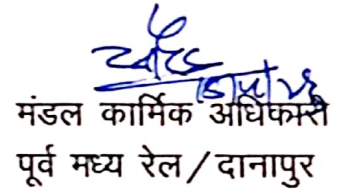 मंडल कार्मिक अधिकारी
पूर्व मध्य रेल/दानापुर